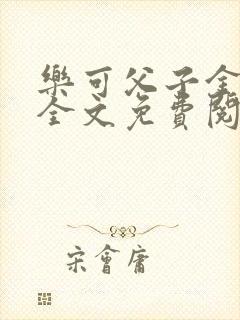 樂可父子全
全文免費閱
宋會庸